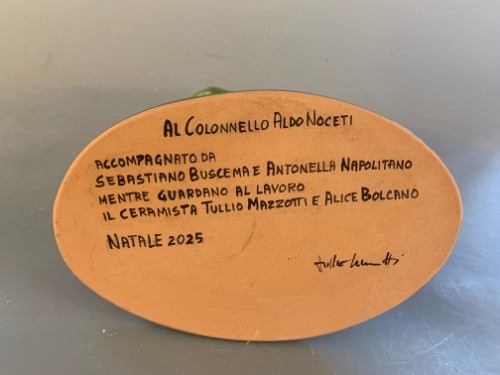 AL COLONNELLO ALDO NOCETI
ACCOMPAGNATO DA
SEBASTIANO BUSCEMA E ANTONELLA NAPOLITANO
MENTRE GUARDANO AL LAVORO
IL CERAMISTA TULLIO MAZZOTTI E ALICE BOLCANO
NATALE 2025